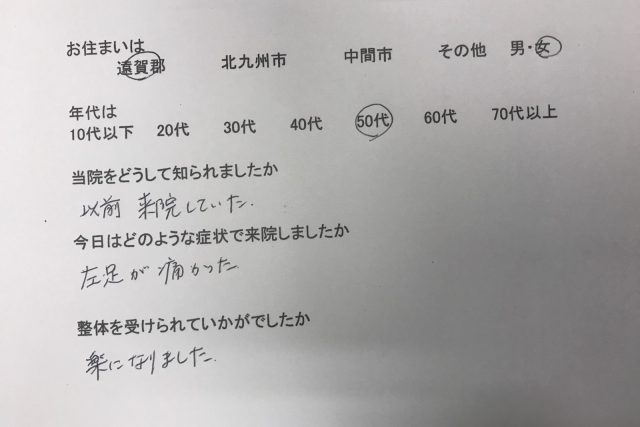 お住まいは
遠賀郡 北九州市 中間市 その他 男・女
年代は
10代以下 20代 30代 40代 50代 60代 70代以上
当院をどうして知られましたか
以前 来院していた.
今日はどのような症状で来院しましたか
左足が痛かった
整体を受けられていかがでしたか
楽になりました.